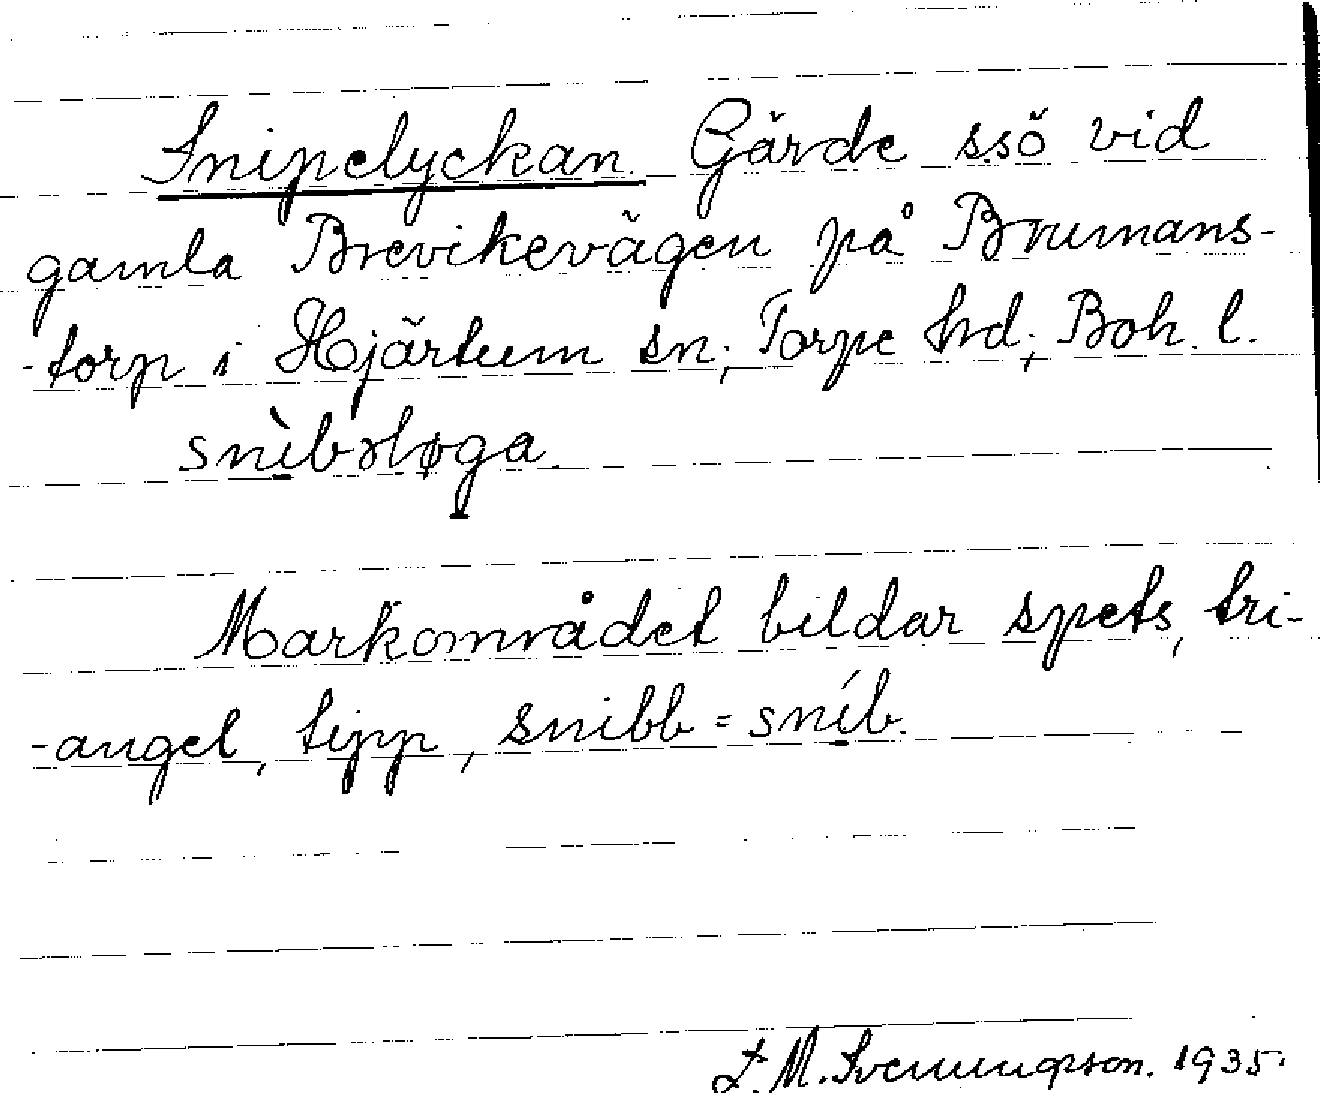 Snipelyckan. Gärde ssö vid
gamla Brevikevägen på Brumans-
-torp i Hjärtum sn; Torpe hd; Boh. l.
snìbəløga.
Markområdet bildar spets, tri-
-angel, tipp, snibb = sníb.
L. M. Svenungsson. 1935.